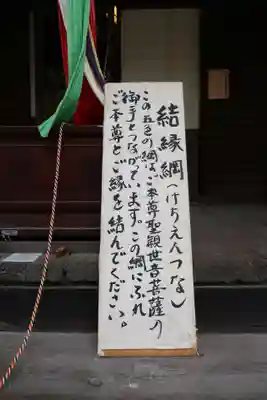 結縁綱(けちえんつな)
この五色の綱は、ご本尊聖観世音菩薩の
御手とつながっています。この綱にふれ
ご本尊とご縁を結んでください。